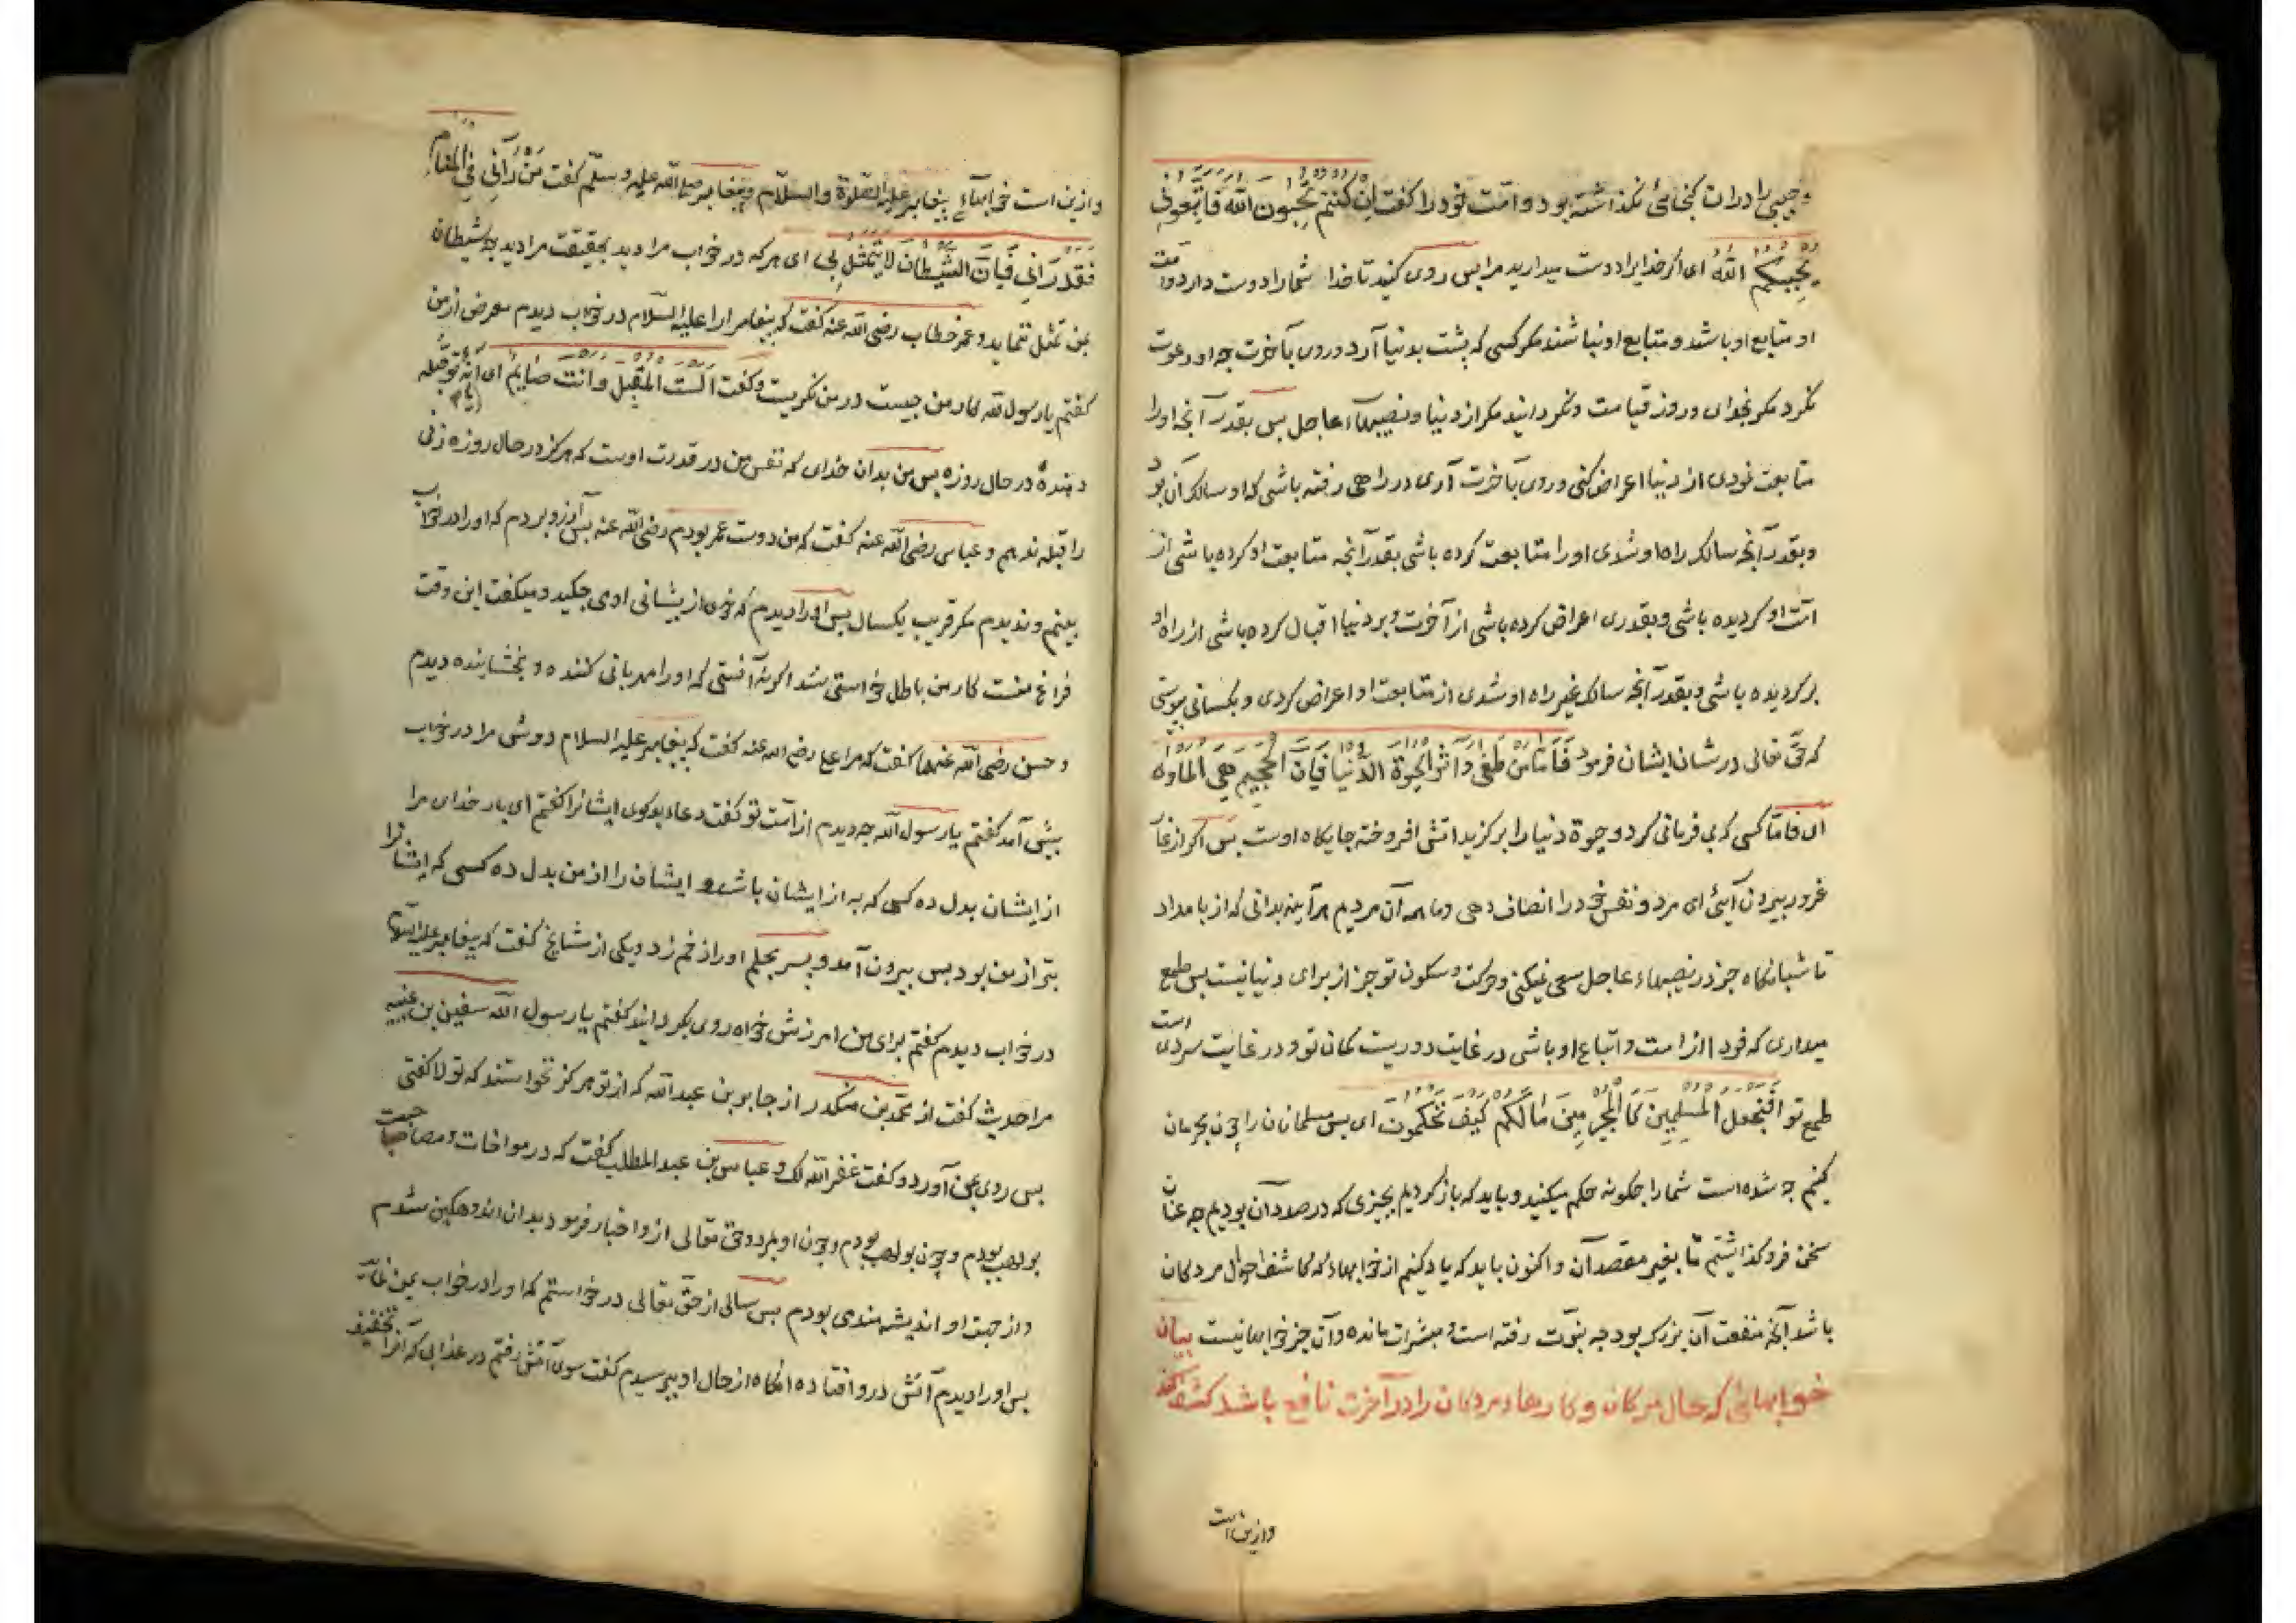 و چیزی را دران کنجائی نگذاشته بود و امّت خود را کفت اِنْ کُنْتُمْ تُحِبُّونَ اللّهَ فَاتَّبِعُونی
یُحْبِبْکُمُ اللّهُ ای اکر خدایرا دوست میدارید مرا پس روی کنید تا خدا شما را دوست دارد و امت
او متابع او باشد و متابع او نباشند مکر کسی که پشت بدنیا آرد و روی بآخرت چه او دعوت
نکرد مکر بخدای و روز قیامت و نکردانید مکر از دنیا و نصیبهاء عاجل پس بقدر آنچه او را
متابعت نمودی از دنیا اعراض کنی و روی بآخرت آری در راهی رفته باشی که او سالک آن بود
و بقدر آنچه سالک راه او شدی او را متابعت کرده باشی بقدر آنچه متابعت او کرده باشی از
امّت او کردیده باشی و بقدری اعراض کرده باشی از آخرت و بر دنیا اقبال کرده باشی از راه او
بر کردیده باشی و بقدر آنچه سالک غیر راه او شدی از متابعت او اعراض کردی و بکسانی پیوستی
که حقّ تعالی در شان ایشان فرمود فَاَمّا مَنْ طَغی وَ اثَرَ الْحَیوةَ الدُّنْیا فَاِنَّ الْجَحِیمَ هِیَ الْمَاْوی
ای فامّا کسی که بی فرمانی کرد و حیوة دنیا را بر کزید اتش افروخته جایکاه اوست پس اکر از
غرور بیرون آیی ای مرد و نفس خود را انصاف دهی و ما همه آن مردیم هرآینه بدانی که از بامداد
تا شبانکاه جز در نصیبهاء عاجل سعی نمیکنی و حرکت و سکون تو جز از برای دنیا نیست پس طمع
میداری که فردا از امت و اتباع او باشی در غایت دوریست کمان تو و در غایت سردی است
طمع تو اَفَنَجْعَلُ الْمُسْلِمِینَ کَالْمُجْرِمِینَ مَا لَکُمْ کَیْفَ تَحْکُمُونَ ای پس مسلمانان را چون مجرمان
کنیم چه شده است شما را چکونه حکم میکنید و باید که باز کردیم بچیزی که در صدد آن بودیم چه عنان
سخن فرو کذاشتیم تا بغیر مقصد آن و اکنون باید که یاد کنیم از خوابهاء که کاشف احوال مردکان
باشد آنچه منفعت آن بزرک بود چه نبوّت رفته است و مبشرات مانده و آن جز خوابها نیست بیان
خوابهائی که حال مردکان و کارهاء مردکان را در آخرت نافع باشد کشف کند
وازین است
وازین است خوابهاء پیغامبر علیه الصّلوة والسلام و پیغامبر صلی اللّه علیه و سلّم کفت مَنْ رَاَنی فی الْمَنَامِ
فَقَدْ رَاَنی فَاِنَّ الشَّیْطَانَ لا یَتَمَثَّلُ بی ای هر که در خواب مرا دید بحقیقت مرا دید چه شیطان
بمن تمثل ننماید و عمر خطاب رضی اللّه عنه کفت که پیغامبر را علیه السّلام در خواب دیدم معرض از من
کفتم یا رسول اللّه کار من چیست در من نکریست و کفت اَلَسْتَ الْمُقَبِّلَ وَ اَنْتَ صَایِمٌ ای نه تو قبله
دهندهٔ در حال روزه پس من بدان خدای که نفس من در قدرت اوست که هرکز در حال روزه زنی
را قبله ندهم و عباس رضی اللّه عنه کفت که من دوست عمر بودم رضی اللّه عنه پس آرزو بردم که او را در خواب
بینم و ندیدم مکر قریب یکسال پس او را دیدم که خوی از پیشانی او می چکید و میکفت این وقت
فراغ منست کار من باطل خواستی شد اکر نه آنستی که او را مهربانی کننده و بخشاینده دیدم
و حسن رضی اللّه عنهما کفت که مرا علی رضی الله عنه کفت که پیغامبر علیه السلام دوش مرا در خواب
پیش آمد کفتم یا رسول اللّه چه دیدم از امّت تو کفت دعاء بد کوی ایشانرا کفتم ای بار خدای مرا
از ایشان بدل ده کسی که به از ایشان باشد و ایشان را از من بدل ده کسی که ایشانرا
بتر از من بود پس بیرون آمد و پسر بجلم او را زخم زد و یکی از مشایخ کفت که پیغامبر علیه السلام
در خواب دیدم کفتم برای من امرزش خواه روی بکردانید کفتم یا رسول اللّه سفین بن عیینه
مرا حدیث کفت از محمّد بن منکدر از جابر بن عبد اللّه که از تو هرکز نخواستند که تو لا کفتی
پس روی بمن آورد و کفت غفر اللّه لک و عباس بن عبد المطلب کفت که در مواخات و مصاحبت
بولهب بودم و چون بولهب بودم و چون او بمرد و حق تعالی از و اخبار فرمود بدان اندوهکین شدم
و از جهت او اندیشه مندی بودم پس سالی از حقّ تعالی در خواستم که او را در خواب بمن نماید
پس او را دیدم آتش در و افتاده انکاه از حال او بپرسیدم کفت سوی آتش رفتم در عذابی که آنرا تخفیف